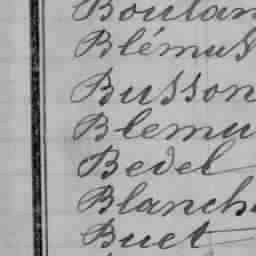 Boulan
Blémus
Busson
Blemu
Bedel
Blanch
Buet